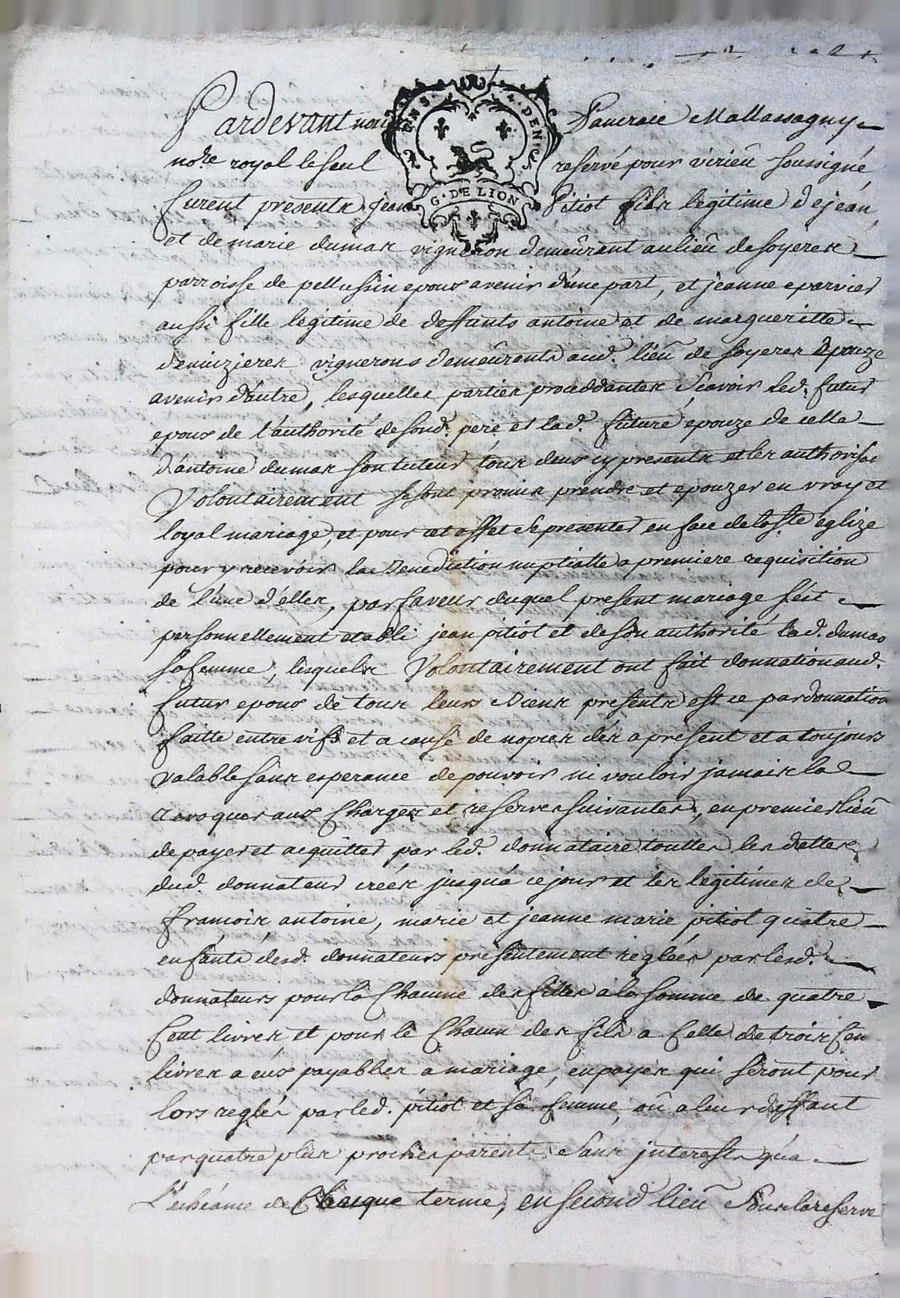 UNS. 4. DEN. C
G. DE LION
Pardevant no.re Pancrace Mallassagny
no.re royal le seul reservé pour virieu soussigné
furent presents jean Pitiot fils legitime de jean
et de marie dumas vigneron demeûrent au lieû de soyeres
parroisse de pellussin epous avenir d'une part, et jeanne eparvier
aussi fille legitime de deffants antoine et de margueritte
vignerons demeûrents aud. lieû de soyeres Epouze
avenir d'autre, lesquelles parties procedantes scavoir led. futur
epous de l'authorité de sond. pere et lad. future epouze de celle
d'antoine dumas son tuteur, tous deus cy presents et les authorisa.
Volontairement se sont promis prendre et epouzer en vray et
loyal mariage, et pour cet effet se presenter en face de la ste eglize
pour y recevoir la Benediction nuptialle a premiere requisition
de l'une d'elles, par faveur duquel present mariage s'est
personnellement etabli jean pitiot et de son authorité lad. dumas
sa femme, lesquels Volontairement ont fait donnation aud.
futur epous de tous leurs Biens presents est ce par donnation
faitte entre vifs et a cause de nopces dés a present et a toujours
valable sans esperance de pouvoir ni vouloir jamais la
revoquer aus Charges et reserves suivantes, en premier lieû
de payer et acquitter par led. donnataire touttes les dettes
dud. donnateur creés jusqu'a ce jour et les legitimes de
francois antoine, marie et jeanne marie pitiot quatre
enfants desd. donnateurs presentement reglées par lesd.
donnateurs pour la Chacune des filles a la somme de quatre
Cent livres et pour le Chacun des fils a Celle de trois Cen
livres a eus payables a mariage, en payes qui seront pour
lors reglés par led. pitiot et sa femme, oû a leur deffaut
par quatre plus proches parents sans interests qu'a
L'echéance de Chacque terme, en second lieû Sous la reserve